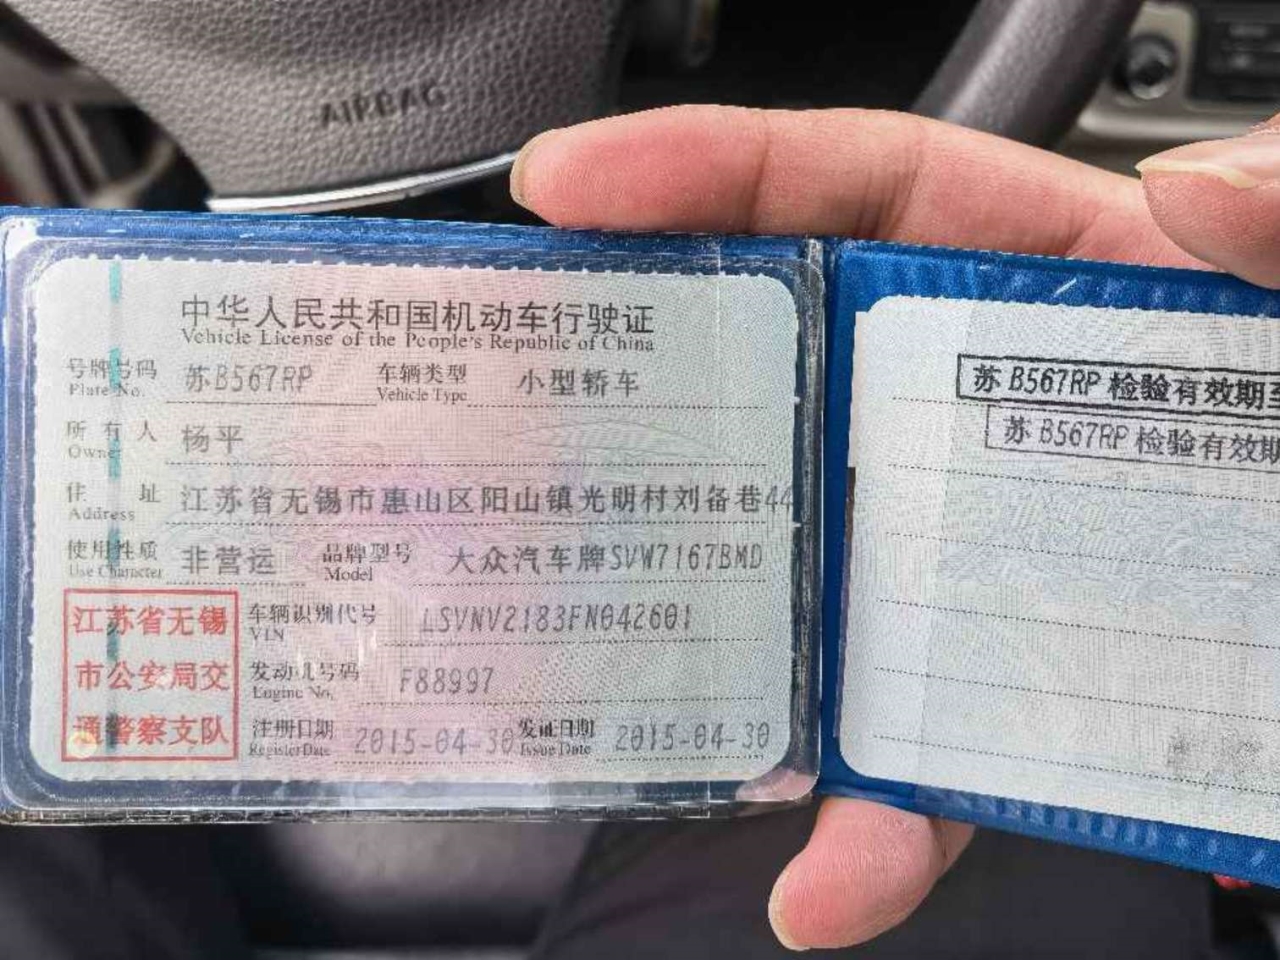 AIRBAG
中华人民共和国机动车行驶证
Vehicle License of the People's Republic of China
号牌号码 苏B567RP 车辆类型 小型轿车
Plate No. Vehicle Type
所有人 杨平
Owner
住址 江苏省无锡市惠山区阳山镇光明村刘备巷44
Address
使用性质 非营运 品牌型号 大众汽车牌SVW7167BMD
Use Character Model
江苏省无锡
市公安局交
通警察支队
车辆识别代号 LSVNV2183FN042601
VIN
发动机号码 F88997
Engine No.
注册日期 2015-04-30 发证日期 2015-04-30
Register Date Issue Date
苏B567RP 检验有效期至
苏B567RP 检验有效期